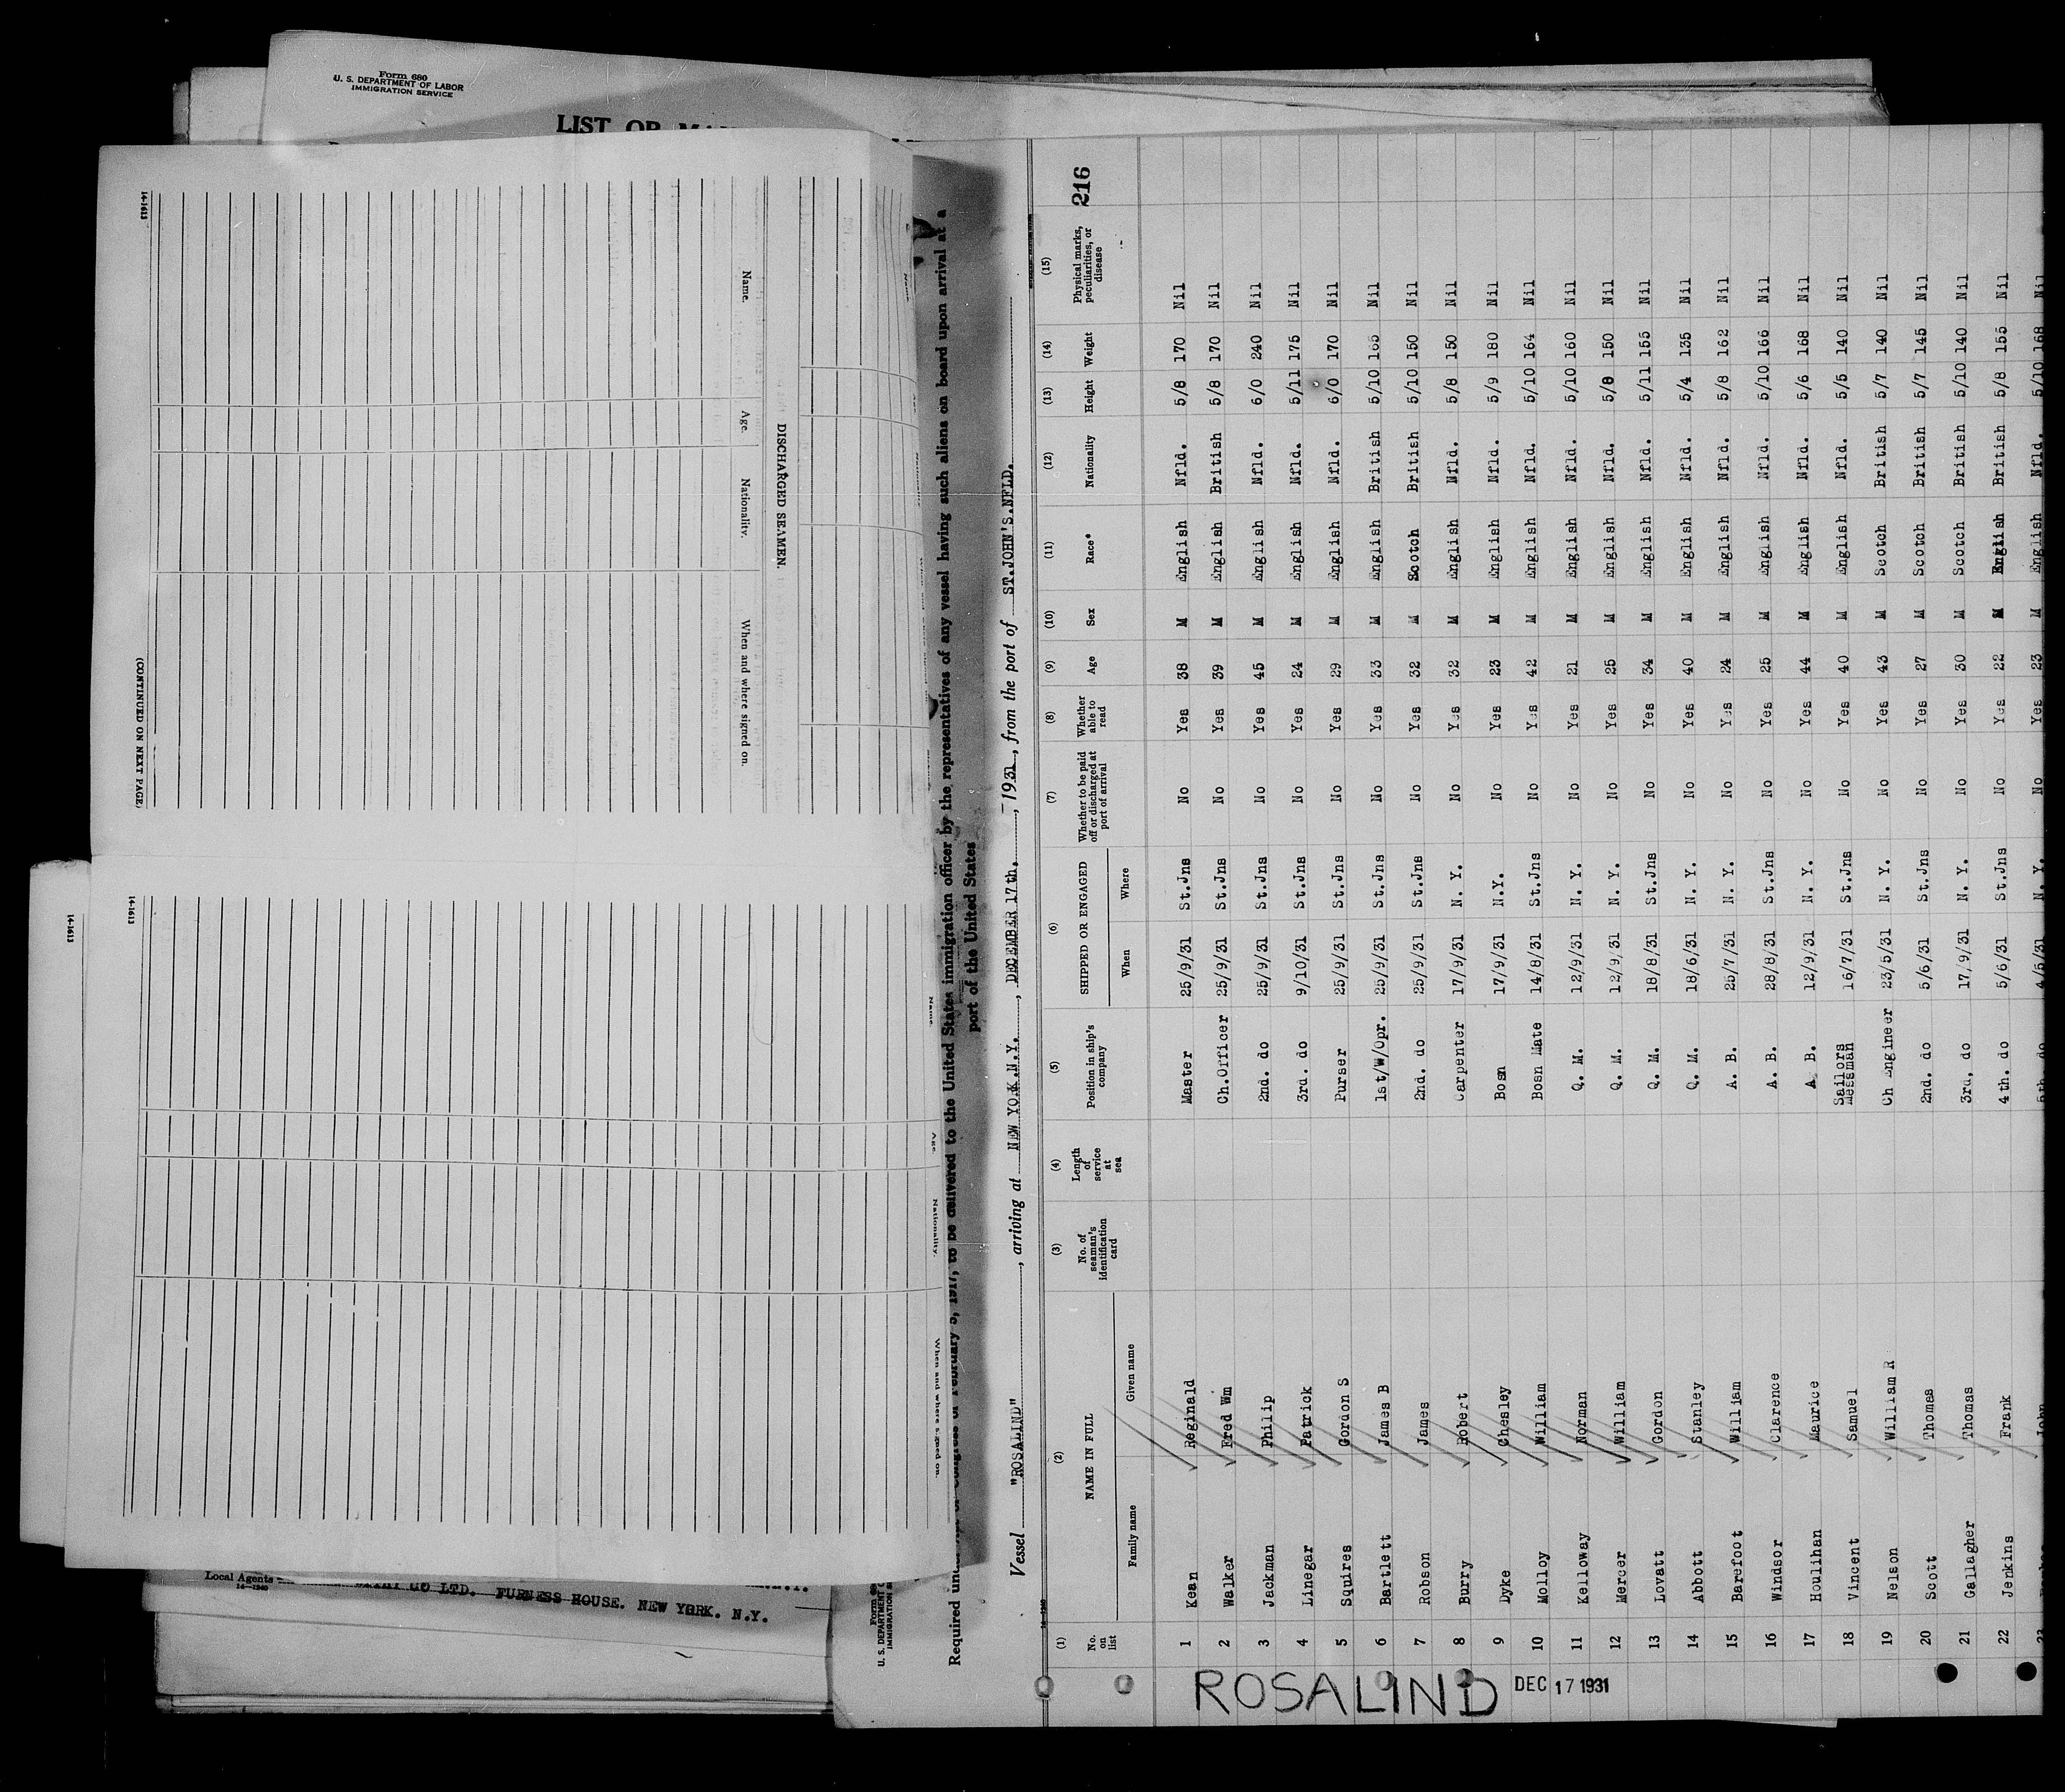 Form 680
U. S. DEPARTMENT OF LABOR
IMMIGRATION SERVICE
LIST OR
14-1613
Name.
Age.
Nationality.
When and where signed on.
DISCHARGED SEAMEN.
(CONTINUED ON NEXT PAGE.)
14-1613
14-1613
Name
Age.
Nationality.
When and where signed on.
Local Agents
14-1240
CO LTD. FURNESS HOUSE. NEW YORK. N.Y.
U. S. DEPARTMENT O
IMMIGRATION S
Required under Act of Congress of February 5, 1917, to be delivered to the United States immigration officer by the representatives of any vessel having such aliens on board upon arrival at a
port of the United States
Vessel "ROSALIND", arriving at NEW YORK.N.Y., DECEMBER 17th., 1931, from the port of ST.JOHN'S.NFLD.
216
(1) (2) (3) (4) (5) (6) (7) (8) (9) (10) (11) (12) (13) (14) (15)
No. on list NAME IN FULL Family name Given name No. of seaman's identification card Length of service at sea Position in ship's company SHIPPED OR ENGAGED When Where Whether to be paid off or discharged at port of arrival Whether able to read Age Sex Race* Nationality Height Weight Physical marks, peculiarities, or disease
1 Kean Reginald Master 25/9/31 St.Jns No Yes 38 M English Nfld. 5/8 170 Nil
2 Walker Fred Wm Ch.Officer 25/9/31 St.Jns No Yes 39 M English British 5/8 170 Nil
3 Jackman Philip 2nd. do 25/9/31 St.Jns No Yes 45 M English Nfld. 6/0 240 Nil
4 Linegar Patrick 3rd. do 9/10/31 St.Jns No Yes 24 M English Nfld. 5/11 175 Nil
5 Squires Gordon S Purser 25/9/31 St.Jns No Yes 29 M English Nfld. 6/0 170 Nil
6 Bartlett James B 1st/W/Opr. 25/9/31 St.Jns No Yes 33 M English British 5/10 165 Nil
7 Robson James 2nd. do 25/9/31 St.Jns No Yes 32 M Scotch British 5/10 150 Nil
8 Burry Robert Carpenter 17/9/31 N. Y. No Yes 32 M English Nfld. 5/8 150 Nil
9 Dyke Chesley Bosn 17/9/31 N.Y. No Yes 23 M English Nfld. 5/9 180 Nil
10 Molloy William Bosn Mate 14/8/31 St.Jns No Yes 42 M English Nfld. 5/10 164 Nil
11 Kelloway Norman Q. M. 12/9/31 N. Y. No Yes 21 M English Nfld. 5/10 160 Nil
12 Mercer William Q. M. 12/9/31 N. Y. No Yes 25 M English Nfld. 5/8 150 Nil
13 Lovatt Gordon Q. M. 18/8/31 St.Jns No Yes 34 M English Nfld. 5/11 155 Nil
14 Abbott Stanley Q. M. 18/6/31 N. Y. No Yes 40 M English Nfld. 5/4 135 Nil
15 Barefoot William A. B. 25/7/31 N. Y. No Yes 24 M English Nfld. 5/8 162 Nil
16 Windsor Clarence A. B. 28/8/31 St.Jns No Yes 25 M English Nfld. 5/10 166 Nil
17 Houlihan Maurice A. B. 12/9/31 N. Y. No Yes 44 M English Nfld. 5/6 168 Nil
18 Vincent Samuel Sailors Messman 16/7/31 St.Jns No Yes 40 M English Nfld. 5/5 140 Nil
19 Nelson William R Ch Engineer 23/5/31 N. Y. No Yes 43 M Scotch British 5/7 140 Nil
20 Scott Thomas 2nd. do 5/6/31 St.Jns No Yes 27 M Scotch British 5/7 145 Nil
21 Gallagher Thomas 3rd. do 17/9/31 N. Y. No Yes 30 M Scotch British 5/10 140 Nil
22 Jenkins Frank 4th. do 5/6/31 St.Jns No Yes 22 M English British 5/8 155 Nil
23 John 5th. do 4/5/31 N. Y. No Yes 23 M English Nfld. 5/10 168 Nil
ROSALIND DEC 17 1931